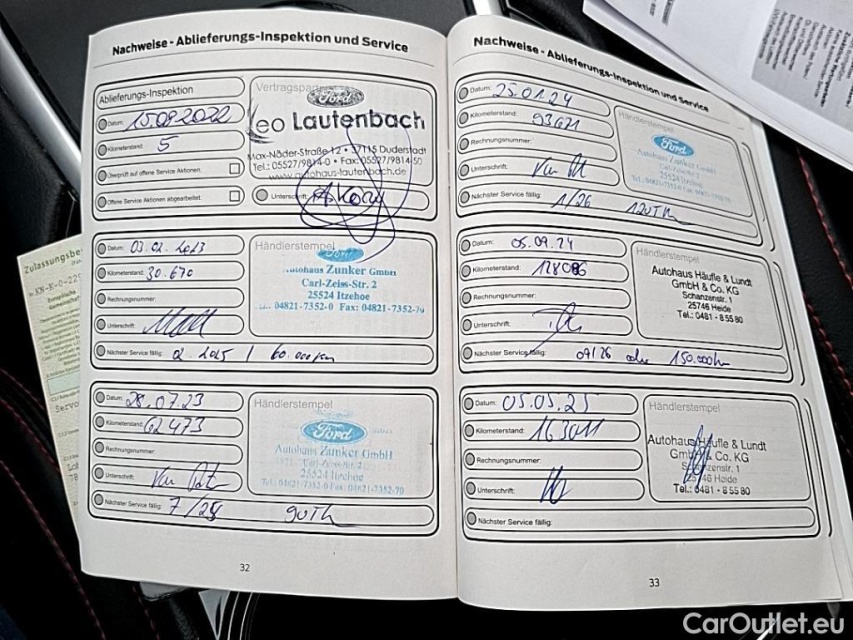 Nachweise - Ablieferungs-Inspektion und Service
Ablieferungs-Inspektion
Datum: 15.09.2022
Kilometerstand: 5
Überprüft auf offene Service Aktionen:
Offene Service Aktionen abgearbeitet:
Ford
Leo Lautenbach
Max-Näder-Straße 12 • 37115 Duderstadt
Tel.: 05527/9814-0 • Fax: 05527/9814-50
www.autohaus-lautenbach.de
Unterschrift:
Datum: 03.02.2023
Kilometerstand: 30.670
Rechnungsnummer:
Unterschrift:
Nächster Service fällig: 2. 2025 / 60.000km
Händlerstempel
Ford
Autohaus Zunker GmbH
Carl-Zeiss-Str. 2
25524 Itzehoe
04821-7352-0 Fax: 04821-7352-70
Datum: 28.07.23
Kilometerstand: 62473
Rechnungsnummer:
Unterschrift:
Nächster Service fällig: 7/25 90Tkm
Händlerstempel
Ford
Autohaus Zunker GmbH
Carl-Zeiss-Str. 2
25524 Itzehoe
Tel.: 04821-7352-0 Fax: 04821-7352-70
32
Nachweise - Ablieferungs-Inspektion und Service
Datum: 25.01.24
Kilometerstand: 93671
Rechnungsnummer:
Unterschrift:
Nächster Service fällig: 1/26 120Tkm
Händlerstempel
Ford
Autohaus Zunker GmbH
Carl-Zeiss-Str. 2
25524 Itzehoe
Datum: 05.09.24
Kilometerstand: 128086
Rechnungsnummer:
Unterschrift:
Nächster Service fällig: 09/26 oder 150.000km
Händlerstempel
Autohaus Häufle & Lundt
GmbH & Co. KG
Schanzenstr. 1
25746 Heide
Tel.: 0481 - 8 55 80
Datum: 05.05.25
Kilometerstand: 163011
Rechnungsnummer:
Unterschrift:
Nächster Service fällig:
Händlerstempel
Autohaus Häufle & Lundt
GmbH & Co. KG
Schanzenstr. 1
25746 Heide
Tel.: 0481 - 8 55 80
33
CarOutlet.eu